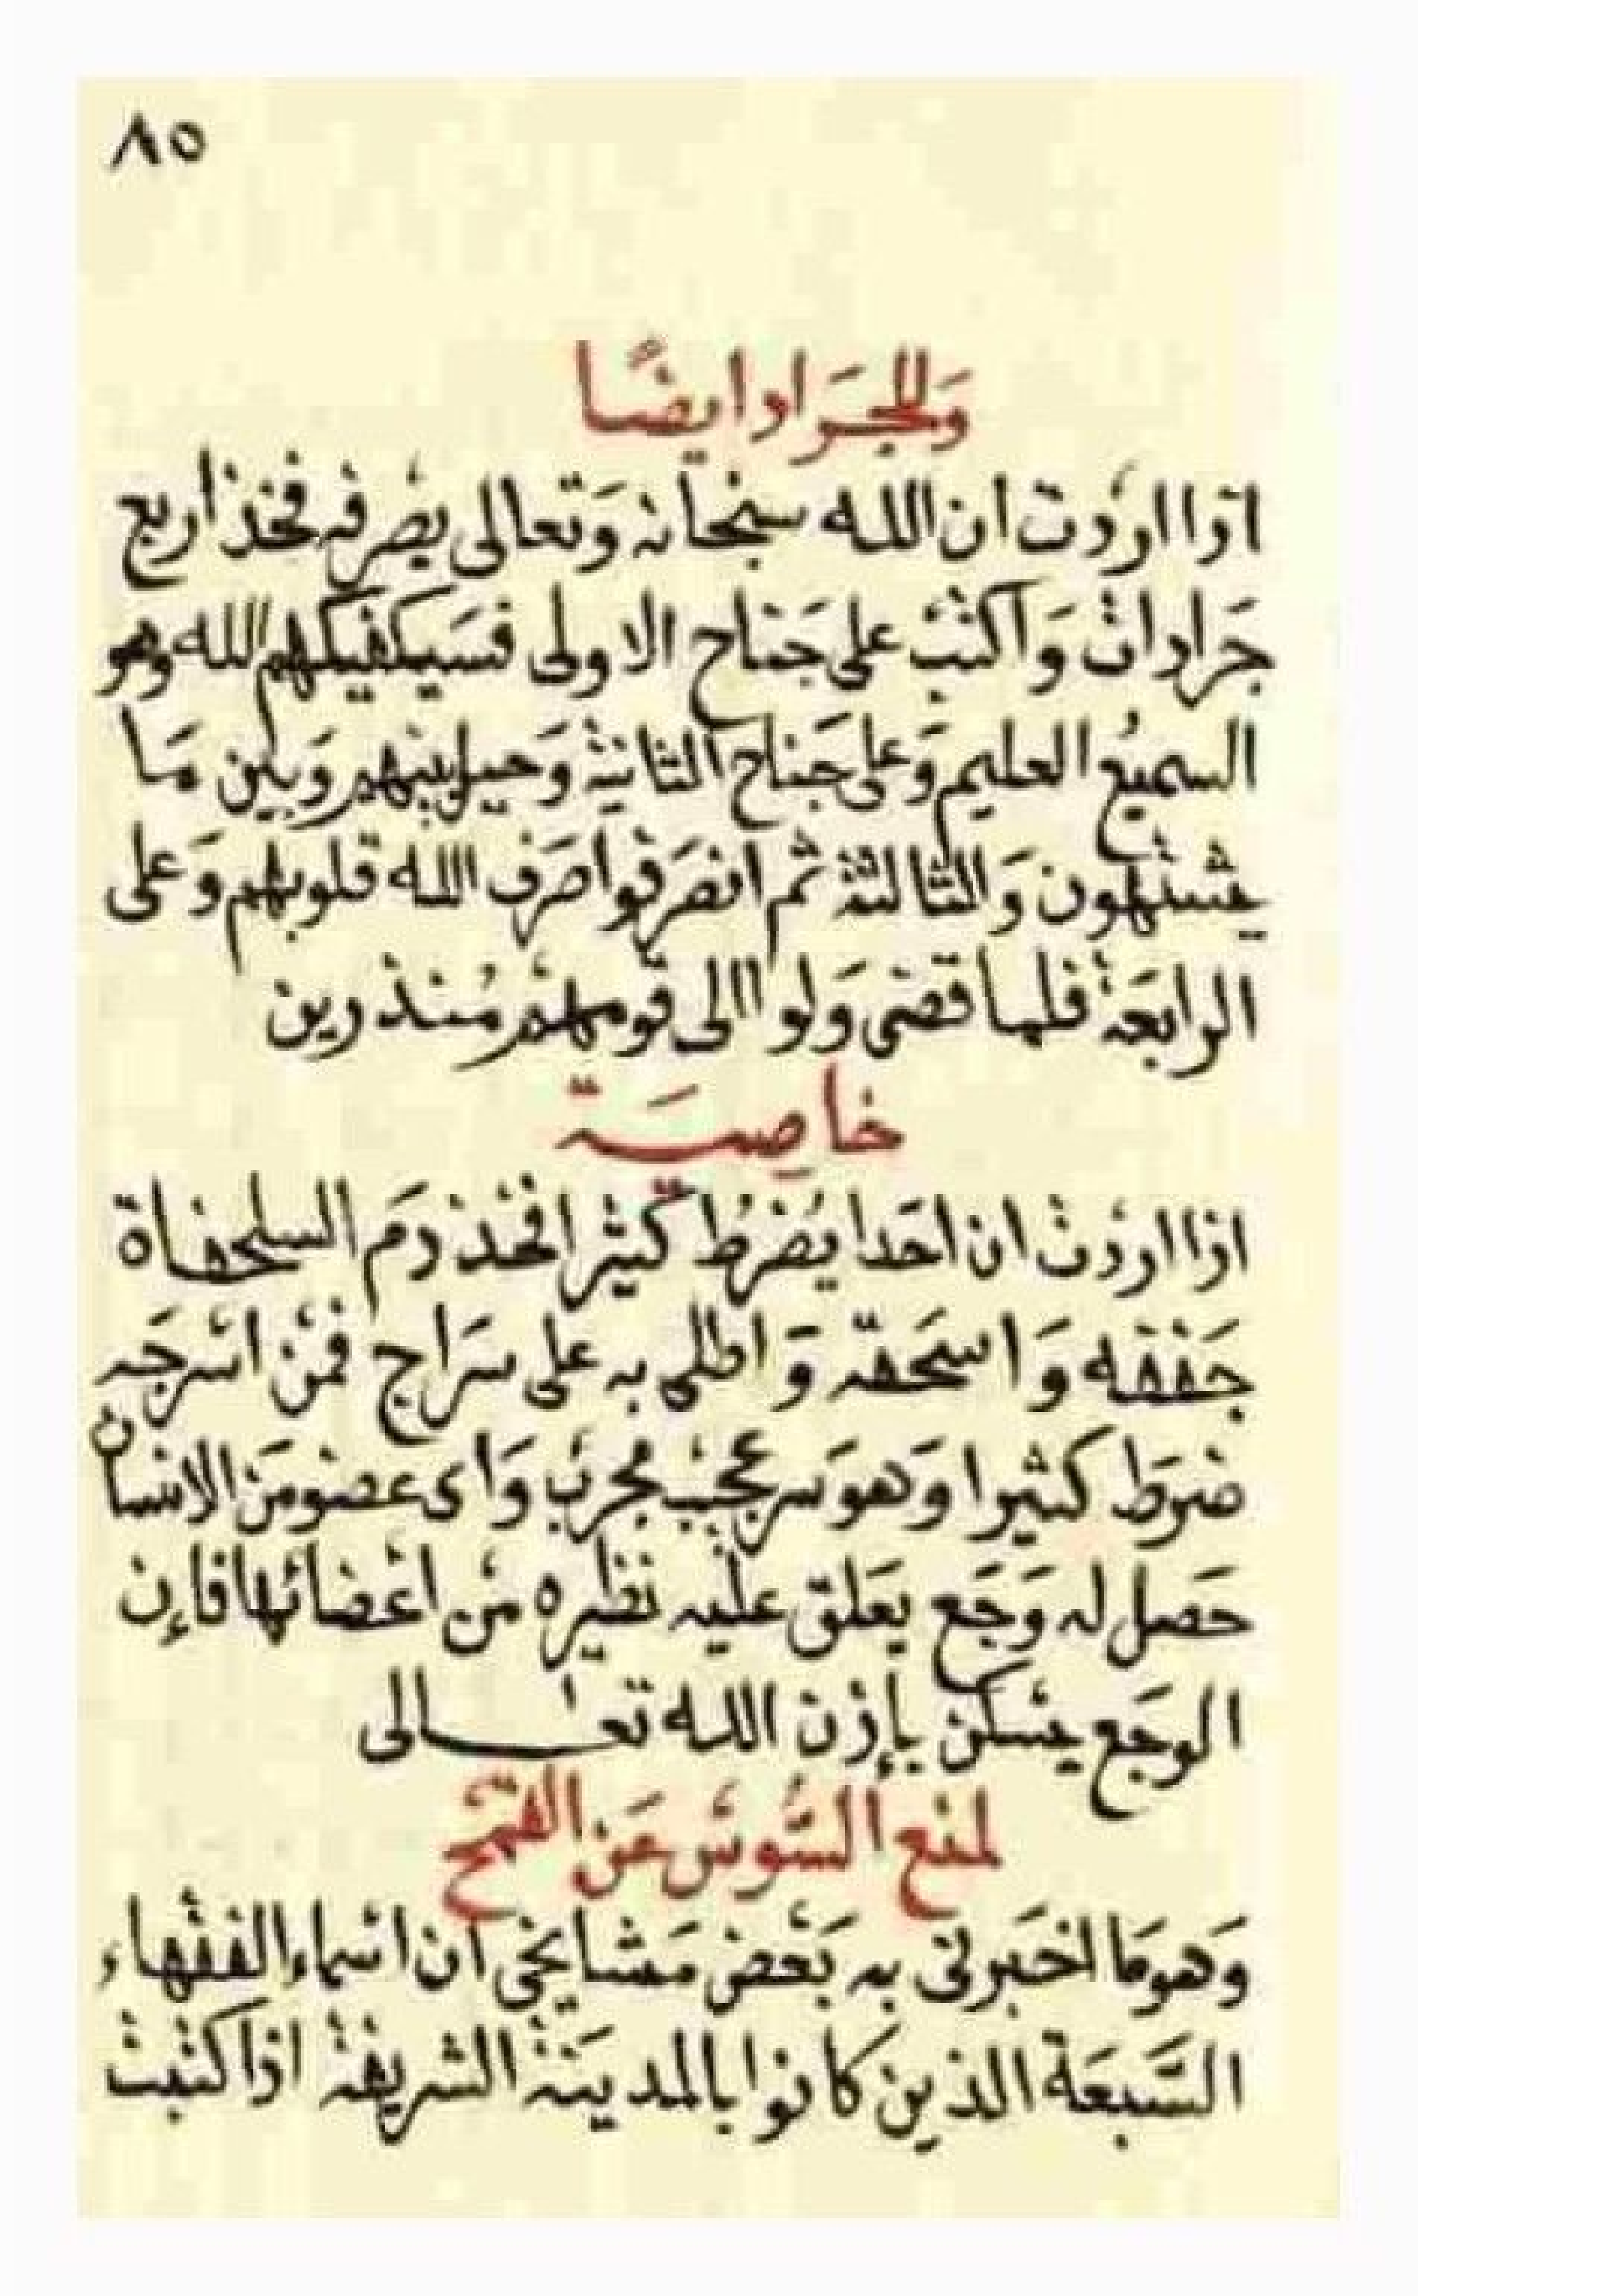 ٨٥
وَللجَراد ايضًا
اذا اردت ان الله سبحانه وَتعالى يصرفه فخذ اربع
جَرادات وَاكتب على جَناح الاولى فسَيكفيكهم الله وهو
السميع العليم وَعلى جَناح الثانية وَحيل بينهم وَبين مَا
يشتهون وَالثالثة ثم انصَرفوا صَرف الله قلوبهم وَعلى
الرابعَة فلما قضى وَلوا الى قومهم مُنذرين
خاصِيَّة
اذا اردت ان احَدا يُضرُط كثيرا فخذ دمَ السلحفاة
جَففه وَاسحَقه وَاطلى به على سَراج فمن اسرجَه
ضرَط كثيرا وَهو سر عجيب مجرب وَاى عضو مَن الانسان
حَصل له وَجَع يعَلق عليه نظيره من اعضائها فإن
الوجَع يسكن بإذن الله تعالى
لمنع السُّوس عَن القمح
وَهو مَا اخبَرنى به بَعض مَشايخى ان اسماء الفقهاء
السَّبعَة الذين كانوا بالمدينَة الشريفة اذا كتبت